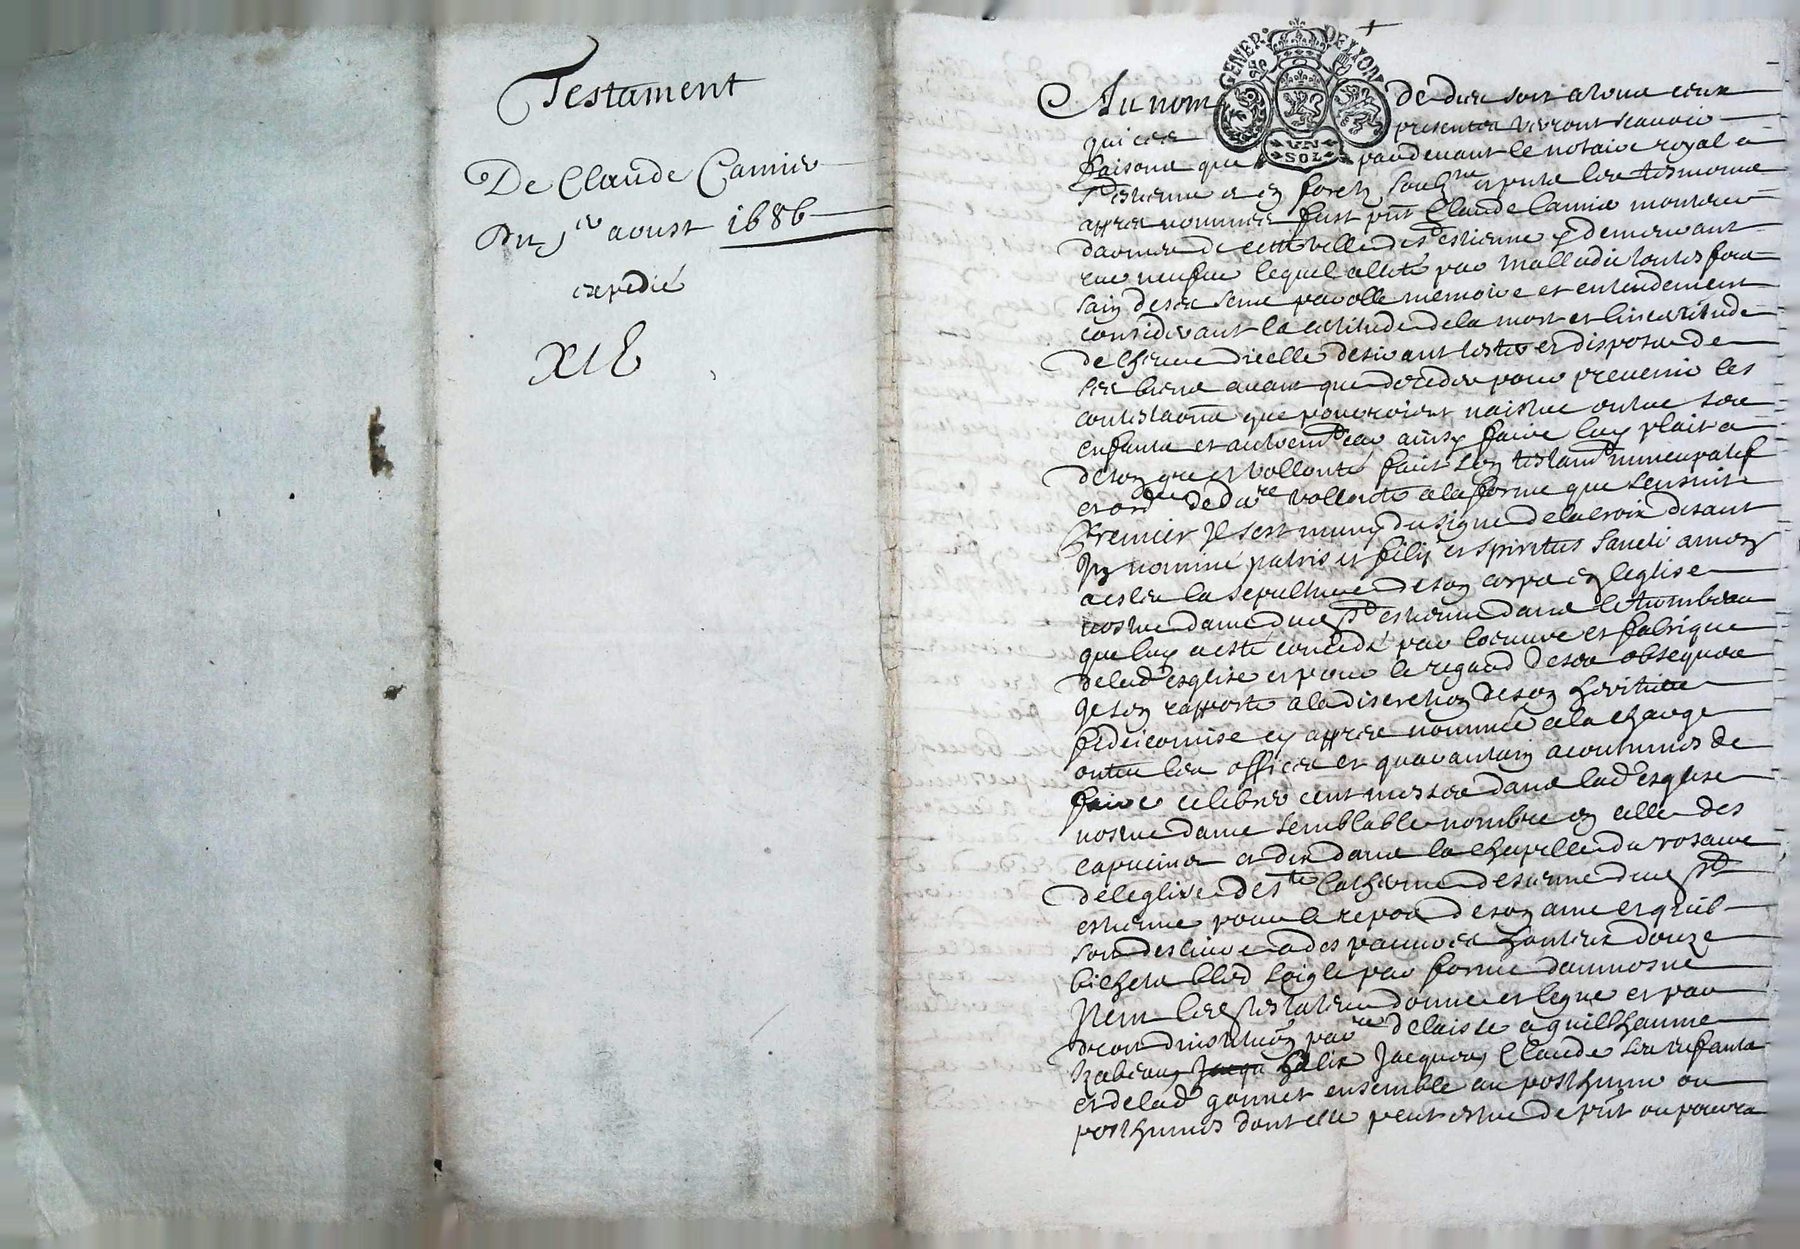 Testament
De Claude Camier
Du j.er aoust 1686
expedié
GENER. DE LYON
UN
SOL
Au nom de dieu soit a tous ceux
qui ces presentes verront scavoir
faisons que pardevant le notaire royal a
St estienne en forests soubz.ne et puis les tesmoins
apres nommes fust pnt Claude Camier monteur
darmes de cette ville de St estienne y demeurant
rue neufve lequel allité par malladie toutes fois
sain de ses sens parolle memoire et entendement
considerant la certitude de la mort et lincertitude
de lheure dicelle desirant tester et disposer de
ses biens avant que deceder pour prevenir les
contestaons que pourroient naistre entre ses
enfants et autrem.t car ainsy faire luy plait a
de son gre et vollonté fait son testam.t nuncupatif
et ord.ce de der.re vollonté a la forme que sensuit
Premier Il sest muny du signe de la croix disant
In nominé patris et filij et spiritus sancti amen
a esleu la sepulture de son corps en leglise
nostre dame dud St estienne dans le tombeau
que luy a esté concedé par loeuvre et fabrique
de lad. esglise et pour le regard de ses obseques
se son rapporte a la discretion de son heritiere
fideicomise cy apres nommée a la charge
outre les offices et quarantain acoutumés de
faire celebrer cent messes dans lad. esglise
nostre dame semblable nombre en celle des
capucins et dix dans la chapelle du rosaire
de leglise de S.te Catherine de sienne dud St
estienne pour le repos de son ame et quil
soit destinue a des pauvres honteux douze
bichets bled soigle par forme daumosne
Item led. testateur donne et legue et par
droit dinstitution par.re delaisse a guilhaume
Izabeau Jacques Claude ses enfants
et de lad. gonnet ensemble au posthume ou
posthumes dont elle peut estre de pnt ou pourra